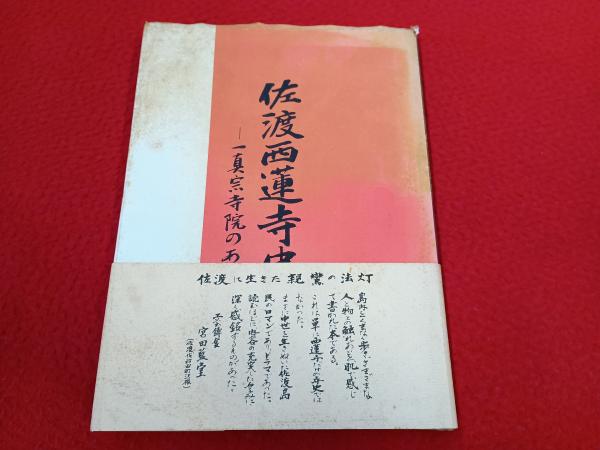 佐渡西蓮寺史
―一真宗寺院のあ
佐渡に生きた親鸞の法灯
島内をくまなく歩き、さまざまな
人と物の触れあいを肌で感じ
て書かれた本である。
これは単に西蓮寺だけの寺史では
なかった。
まさに中世を生きぬいた佐渡島
民のロマンであり、ドラマであった。
読むほどに内容の充実した重みに
深く感銘するものがあった。
宮田藍堂